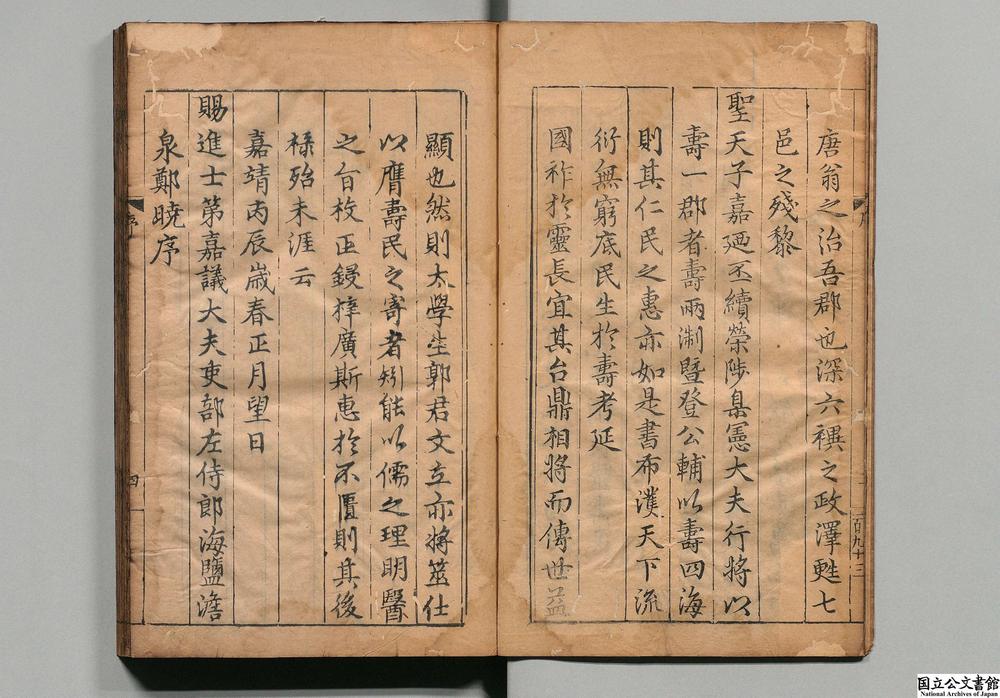 唐翁之治吾郡也深六禩之政澤甦七
邑之殘黎
聖天子嘉廼丕續榮陟臬憲大夫行將以
壽一郡者壽兩淛暨登公輔以壽四海
則其仁民之惠亦如是書布濩天下流
衍無窮底民生於壽考延
國祚於靈長宜其台鼎相將而傳世益
顯也然則太學生郭君文立亦將筮仕
以膺壽民之寄者矧能以儒之理明醫
之旨校正鋟梓廣斯惠於不匱則其後
祿殆未涯云
嘉靖丙辰歲春正月望日
賜進士第嘉議大夫吏部左侍郎海鹽澹
泉鄭曉序
四
百九十三
国立公文書館
National Archives of Japan